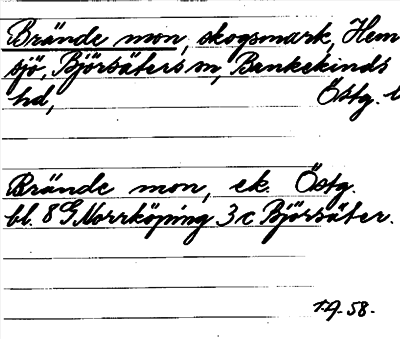 Brände mon, skogsmark, Hem
sjö, Björsäters sn, Bankekinds
hd, Östg. l
Brände mon, ek. Östg.
bl. 8 G Norrköping 3 c Björsäter.
58.